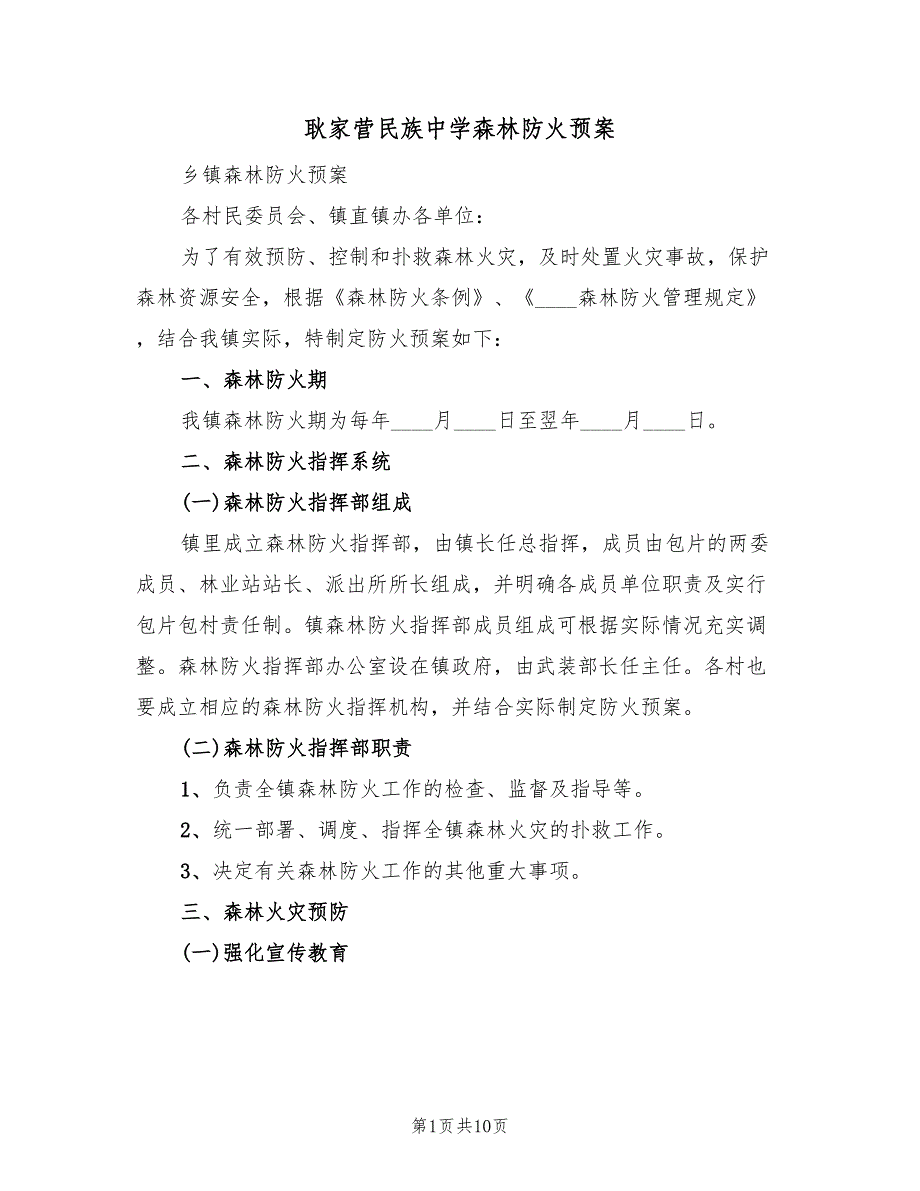 耿家营民族中学森林防火预案
乡镇森林防火预案
各村民委员会、镇直镇办各单位：
为了有效预防、控制和扑救森林火灾，及时处置火灾事故，保护
森林资源安全，根据《森林防火条例》、《____森林防火管理规定》
，结合我镇实际，特制定防火预案如下：
一、森林防火期
我镇森林防火期为每年____月____日至翌年____月____日。
二、森林防火指挥系统
(一)森林防火指挥部组成
镇里成立森林防火指挥部，由镇长任总指挥，成员由包片的两委
成员、林业站站长、派出所所长组成，并明确各成员单位职责及实行
包片包村责任制。镇森林防火指挥部成员组成可根据实际情况充实调
整。森林防火指挥部办公室设在镇政府，由武装部长任主任。各村也
要成立相应的森林防火指挥机构，并结合实际制定防火预案。
(二)森林防火指挥部职责
1、负责全镇森林防火工作的检查、监督及指导等。
2、统一部署、调度、指挥全镇森林火灾的扑救工作。
3、决定有关森林防火工作的其他重大事项。
三、森林火灾预防
(一)强化宣传教育
第1页共10页